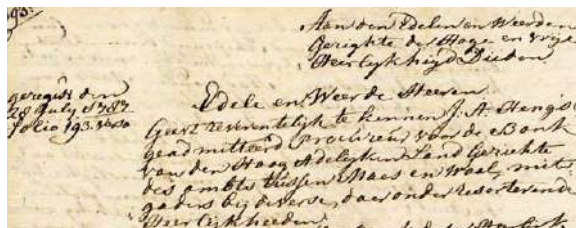 193.
Aan den Edelen en Weerden
Gerighte der Hoge en vrije
Heerlykheyd Diedon
geregist den
28 July 1787
folio 193. verso
Edele en Weerde Heeren
Geeft reverentelyk te kennen J. A. Hengst
geadmitteerd Procureur voor de Bank
van den Hoog Adelyken Land Gerichte
des ambts tussen Maes en Waal, mits-
gaders bij diverse, daer onder resorterende
Heerlykheeden